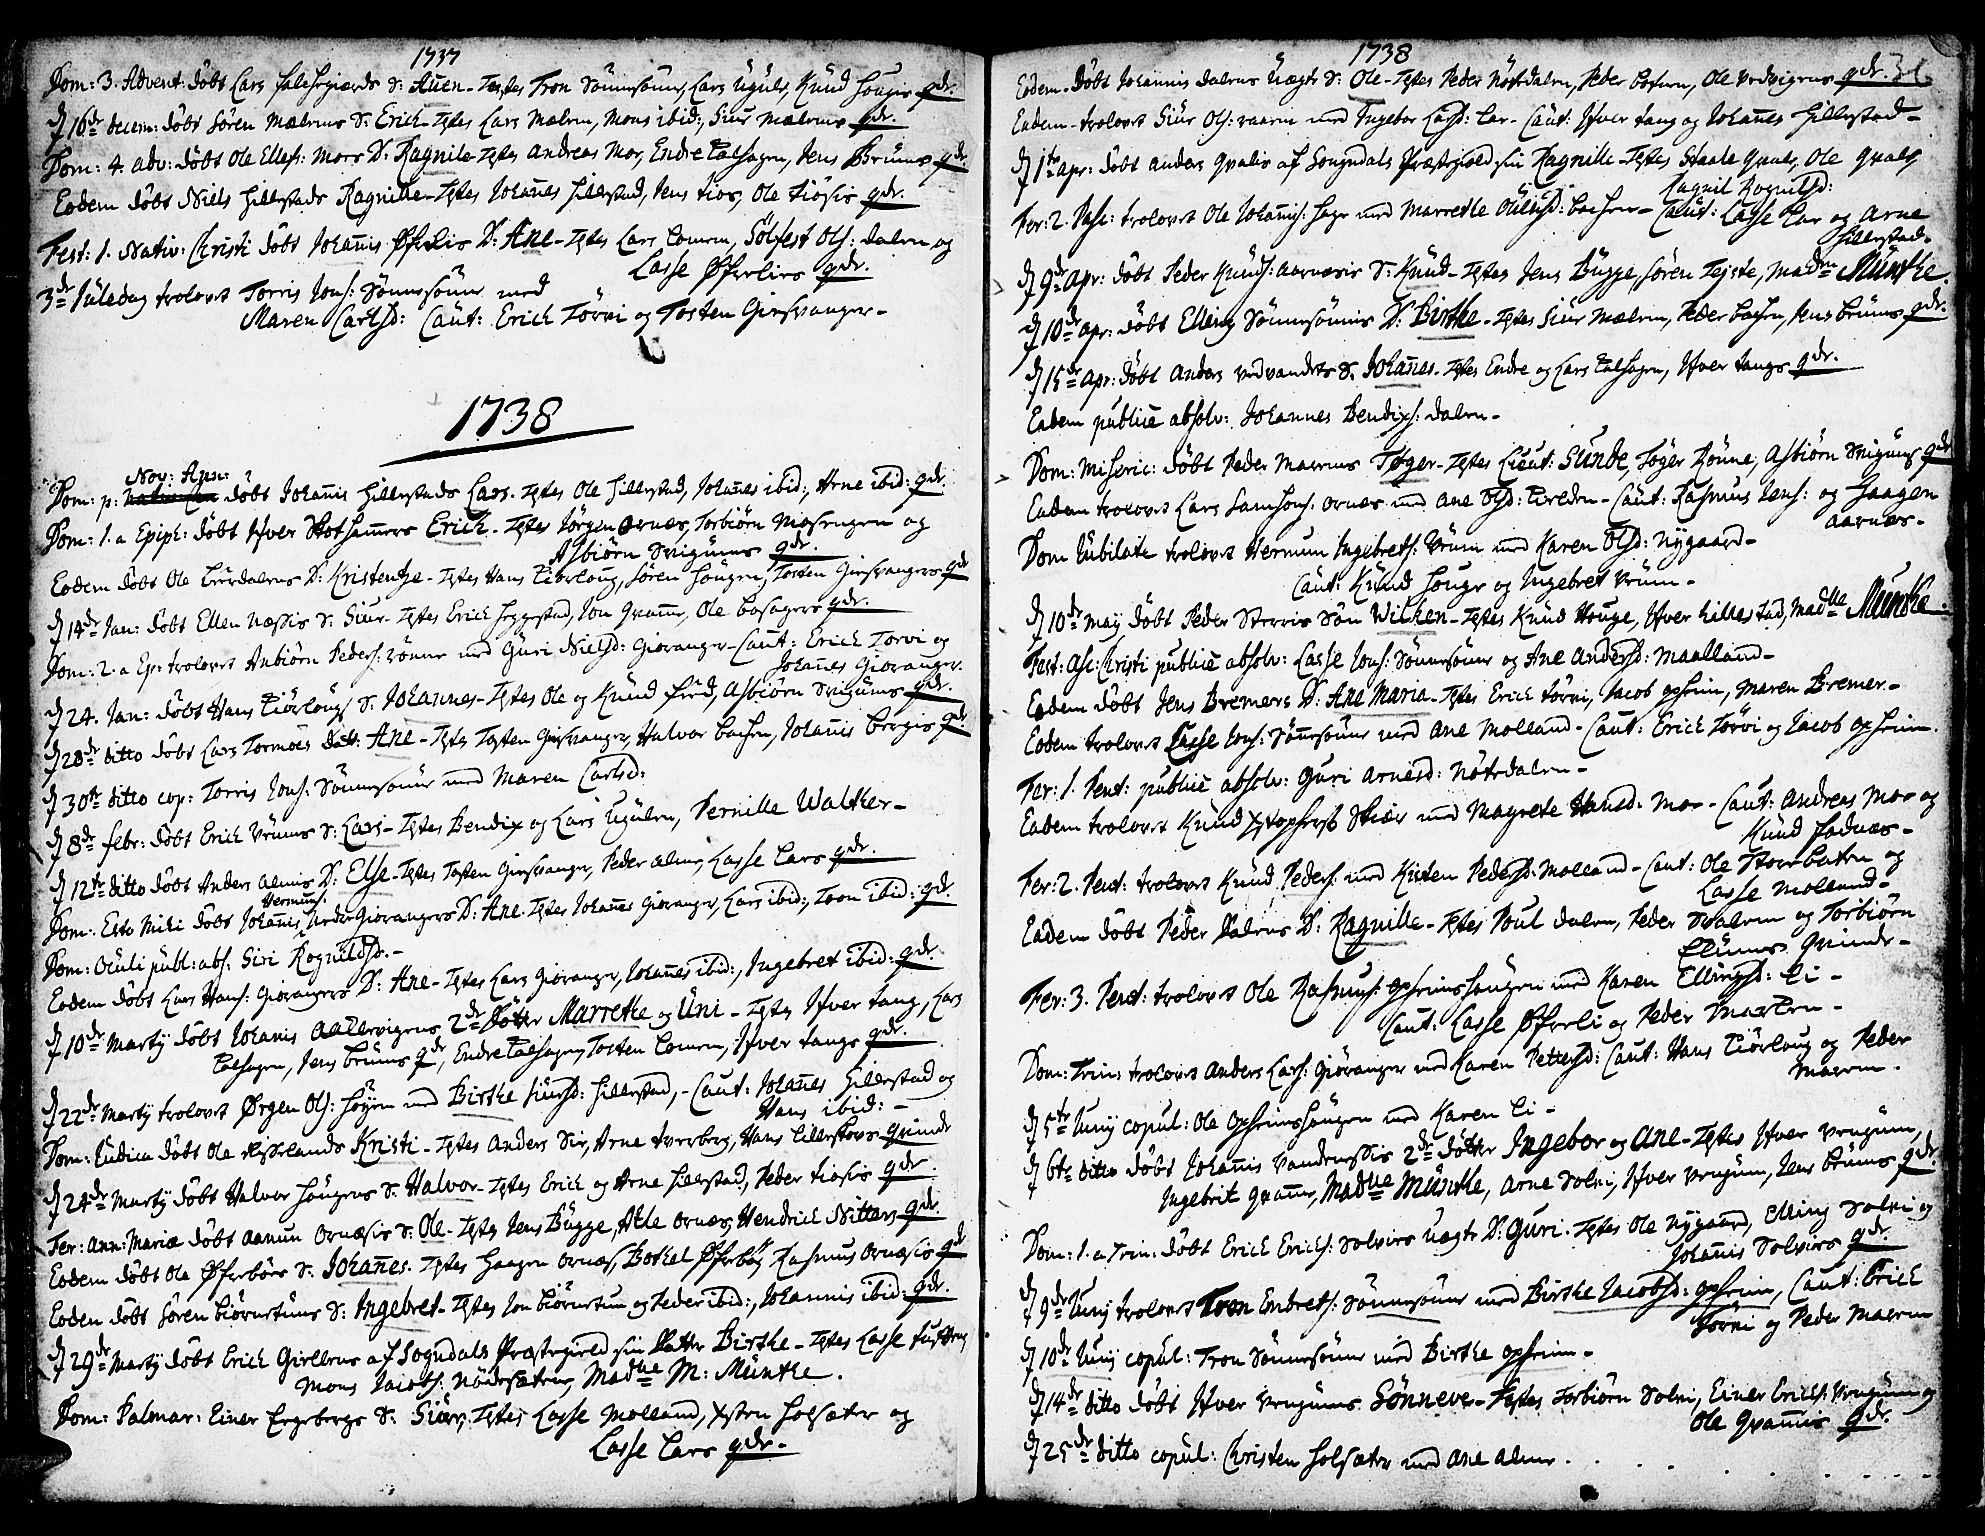 1737
Dom: 3. Advent: döbt Lars S: Auen - Testes Tron Sönnesönn, Lars Uguls, Knud Hougis qdr.
d 16de decem: döbt Sören Mælens S: Erich - Testes Lars Mælen, Mons ibid:, Siur Mælens qdr.
Dom: 4. adv: döbt Ole Ellefs: Mors D: Ragnile - Testes Andreas Mor, Endre Talhagen, Jens Bruns qdr
Eodem döbt Niels Hillestads Ragnille - Testes Johannes Hillestad, Jens Tios, Ole Tiösis qdr.
Fest: 1. Nativ: Christi döbt Johannis Øfrelis D: Ane - Testes Lars Lomen, Sölfest Ols: Dalen og
Lasse Øfrelirs qdr.
3de Juledag trolovet Torris Jons: Sönnesönn med
Maren Carlsd: Caut: Erich Törvi og Tosten Girsvanger -
1738
Nov: Ann:
Dom: p: döbt Johannis Hillestads Lars - Testes Ole Hillestad, Johannes ibid:, Arne ibid: qdr.
Dom: 1. a Epiph: döbt Ifver Skothammers Erich - Testes Jörgen Ornes, Torbiörn Mosengen og
Asbiörn Svigums qdr.
Eodem döbt Ole D: Kristentze - Testes Hans Tiörloug, Sören Hougen, Tosten Girsvangers qdr
d 14de Jan: döbt Ellen Næssis S: Siur - Testes Erich Heggestad, Jon Qvamme, Ole qdr.
Dom: 2. a Ep: trolovet Anbiörn Peders: Rönne med Guri Nielsd: Gioranger - Caut: Erich Torvi og
Johannes Gioranger.
d 24. Jan: döbt Hans Tiörlougs S: Johannes - Testes Ole og Knud Frud, Asbiörn Svigums qdr.
d 28de ditto döbt Lars Tormoes datt: Ane - Testes Tosten Girsvanger, Halvor Bachen, Johannis Bergis qdr
d 30te ditto cop: Torris Jons: Sönnesönn med Maren Carlsd:
d 8de febr: döbt Erich Vrums S: Lars - Testes Bendix og Lars Ugulen, Pernille Walther -
d 12te ditto döbt Anders Almis D: Else - Testes Tosten Girsvanger, Peder Alme, Lasse Lars qdr.
Hermuns:
Dom: Esto Mihi döbt Johannis Nerder Giorangers D: Ane - Testes Johannes Gioranger, Lars ibid:, Toon ibid: qdr.
Dom: Oculi publ: abs: Siri Rognildsd. -
Eodem döbt Lars Hans: Giorangers D: Ane - Testes Lars Gioranger, Johannes ibid:, Ingebret ibid: qdr.
d 10de Martÿ döbt Johanis 2de Dötter Marrethe og Uni - Testes Ifver Tang, Lars
Talhagen, Jens Bruns qdr, Endre Talhagen, Tosten Lomen, Ifver Tangs qdr.
d 22de Martÿ trolovet Ørgen Ols: Höyen med Birthe Siursd: Hillestad, - Caut: Johannes Hillestad og
Hans ibid: -
Dom: Judica döbt Ole Kristi - Testes Anders Sir, Arne Averberg, Hans Lillestovs Qvinde
d 24de Martÿ döbt Halvor Hougens S. Halvor - Testes Erich og Arne Hillestad, Peder Tiösis qdr.
Fer: Ann: Mariæ döbt Aamun Ornæsis S: Ole - Testes Jens Bugge, Atle Ornæs, Hendrich Nitters qdr.
Eodem döbt Ole Øfrebörs S: Johannes - Testes Haagen Ornæs, Bothel Øfrebö, Rasmus Ornæsis qdr
Eodem döbt Sören Biörnetuns S: Ingebret - Testes Jon Biörnetun og Peder ibid:, Johannis ibid: qdr.
d 29de Martÿ döbt Erich Girllens af Sogndals Præstegield sin Datter Birthe - Testes Lasse
Mons Jacobs: Nödesæter, Madlle M: Münthe.
Dom: Palmar: Einer Engebergs S: Siur, Testes Lasse Molland, Xsten Holsæter og
Lasse Lars qdr. -
1738
36
Eodem - döbt Johannis Dalens Uægte S: Ole - Testes Peder Nöstdalen, Peder Bachen, Ole Vedvigens qdr.
Eodem - trolovet Siur Ols: Raaen med Ingebor Larsd: Lar - Caut: Ifver Tang og Johannes Hillestad -
d 1te Apr: döbt Anders Qvalis af Songndals Præstegield sin Ragnille - Testes Staale Qvale, Ole Qvale,
Ragnil Rognilsd:
Fer: 2. Pasc: trolovet Ole Johannis: Hage med Marrethe Olesd: Bachen - Caut: Lasse Lar og Arne
Hillestad -
d 9de Apr: döbt Peder Knuds: Aarnæsis S: Knud - Testes Jens Bugge, Sören Teiste, Madm Münthe.
d 10de Apr: döbt Elling Sönnesönnis D: Birthe - Testes Siur Mælen, Peder Bachen, Jens Bruns qdr.
d 15de Apr: döbt Anders Vedvandets S. Johannes - Testes Endre og Lars Talhagen, Ifver Tangs qdr.
Eodem publice absolv: Johannes Bendixs: Dalen -
Dom: Miseric: döbt Peder Maarens Töger - Testes Lieut: Sunde, Töger Rönne, Asbiörn Svigums qdr
Eodem trolovet Lars Samsons: Ornæs med Ane Olsd: - Caut: Rasmus Jens: og Haagen
Aarnæs -
Dom Jubilate trolovet Hermun Ingebrets: Vrum med Karen Olsd: Nygaard -
Caut: Knud Houge og Ingebret Vrum -
d 10de Maÿ döbt Peder Sterris Sön Wilchen - Testes Knud Houge, Ifver Lillestad, Madlle Münthe.
Fest: Asc: Christi publice absolv: Lasse Jons: Sönnesönn og Ane Andersd: Maalland -
Eodem döbt Jens Bremers D: Ane Maria - Testes Erich Törvi, Jacob Opheim, Maren Bremer -
Eodem trolovet Lasse Jons: Sönnesönn med Ane Molland - Caut: Erich Törvi og Jacob Opheim.
Fer: 1. Pent: publice absolv: Guri Arnesd: Nöstedalen -
Eodem trolovet Knud Xstophers: Skiær med Magrete Hansd: Mor - Caut: Andreas Mor og
Knud Fodnæs -
Fer: 2. Pent: trolovet Knud Peders: med Kisten Pedersd: Molland - Caut: Ole og
Lasse Molland -
Eadem döbt Peder Dalens D: Ragnille - Testes Poul Dalen, Peder Dalen og Torbiörn
Qvinde -
Fer: 3. Pent: trolovet Ole Rasmus: Opheimshougen med Karen Ellingsd: Li -
Caut: Lasse Øfreli og Peder Maaren -
Dom: Trin: trolovet Anders Lars: Gioranger med Karen Pettersd: Caut: Hans Tiörloug og Peder
Maaren.
d 5te Junÿ copul: Ole Opheimshougen med Karen Li -
d 6te ditto döbt Johannis 2de dötter Ingebor og Ane - Testes Ifver Vengum,
Ingebrit Qvamme, Madlle Münthe, Arne Solvi, Ifver Vengum, Jens Bruns qdr.
Dom: 1. a Trin: döbt Erich Erichs: Solvirs Uægte D: Guri - Testes Ole Nygaard, Elling Solvi og
Johannis Solvirs qdr.
d 9de Junÿ trolovet Tron Endrets: Sönnesönn med Birthe Jacobsd: Opheim, Caut: Erich
Törvi og Peder Maaren
d 10de Junÿ copul: Tron Sönnesönn med Birthe Opheim -
d 14de ditto döbt Ifver Vengums Sönneve - Testes Torbiörn Solvi, Einer Erichs: Vengum og
Ole Qvammis qdr.
d 25de ditto copul: Christen Holsæter med Ane Alme.